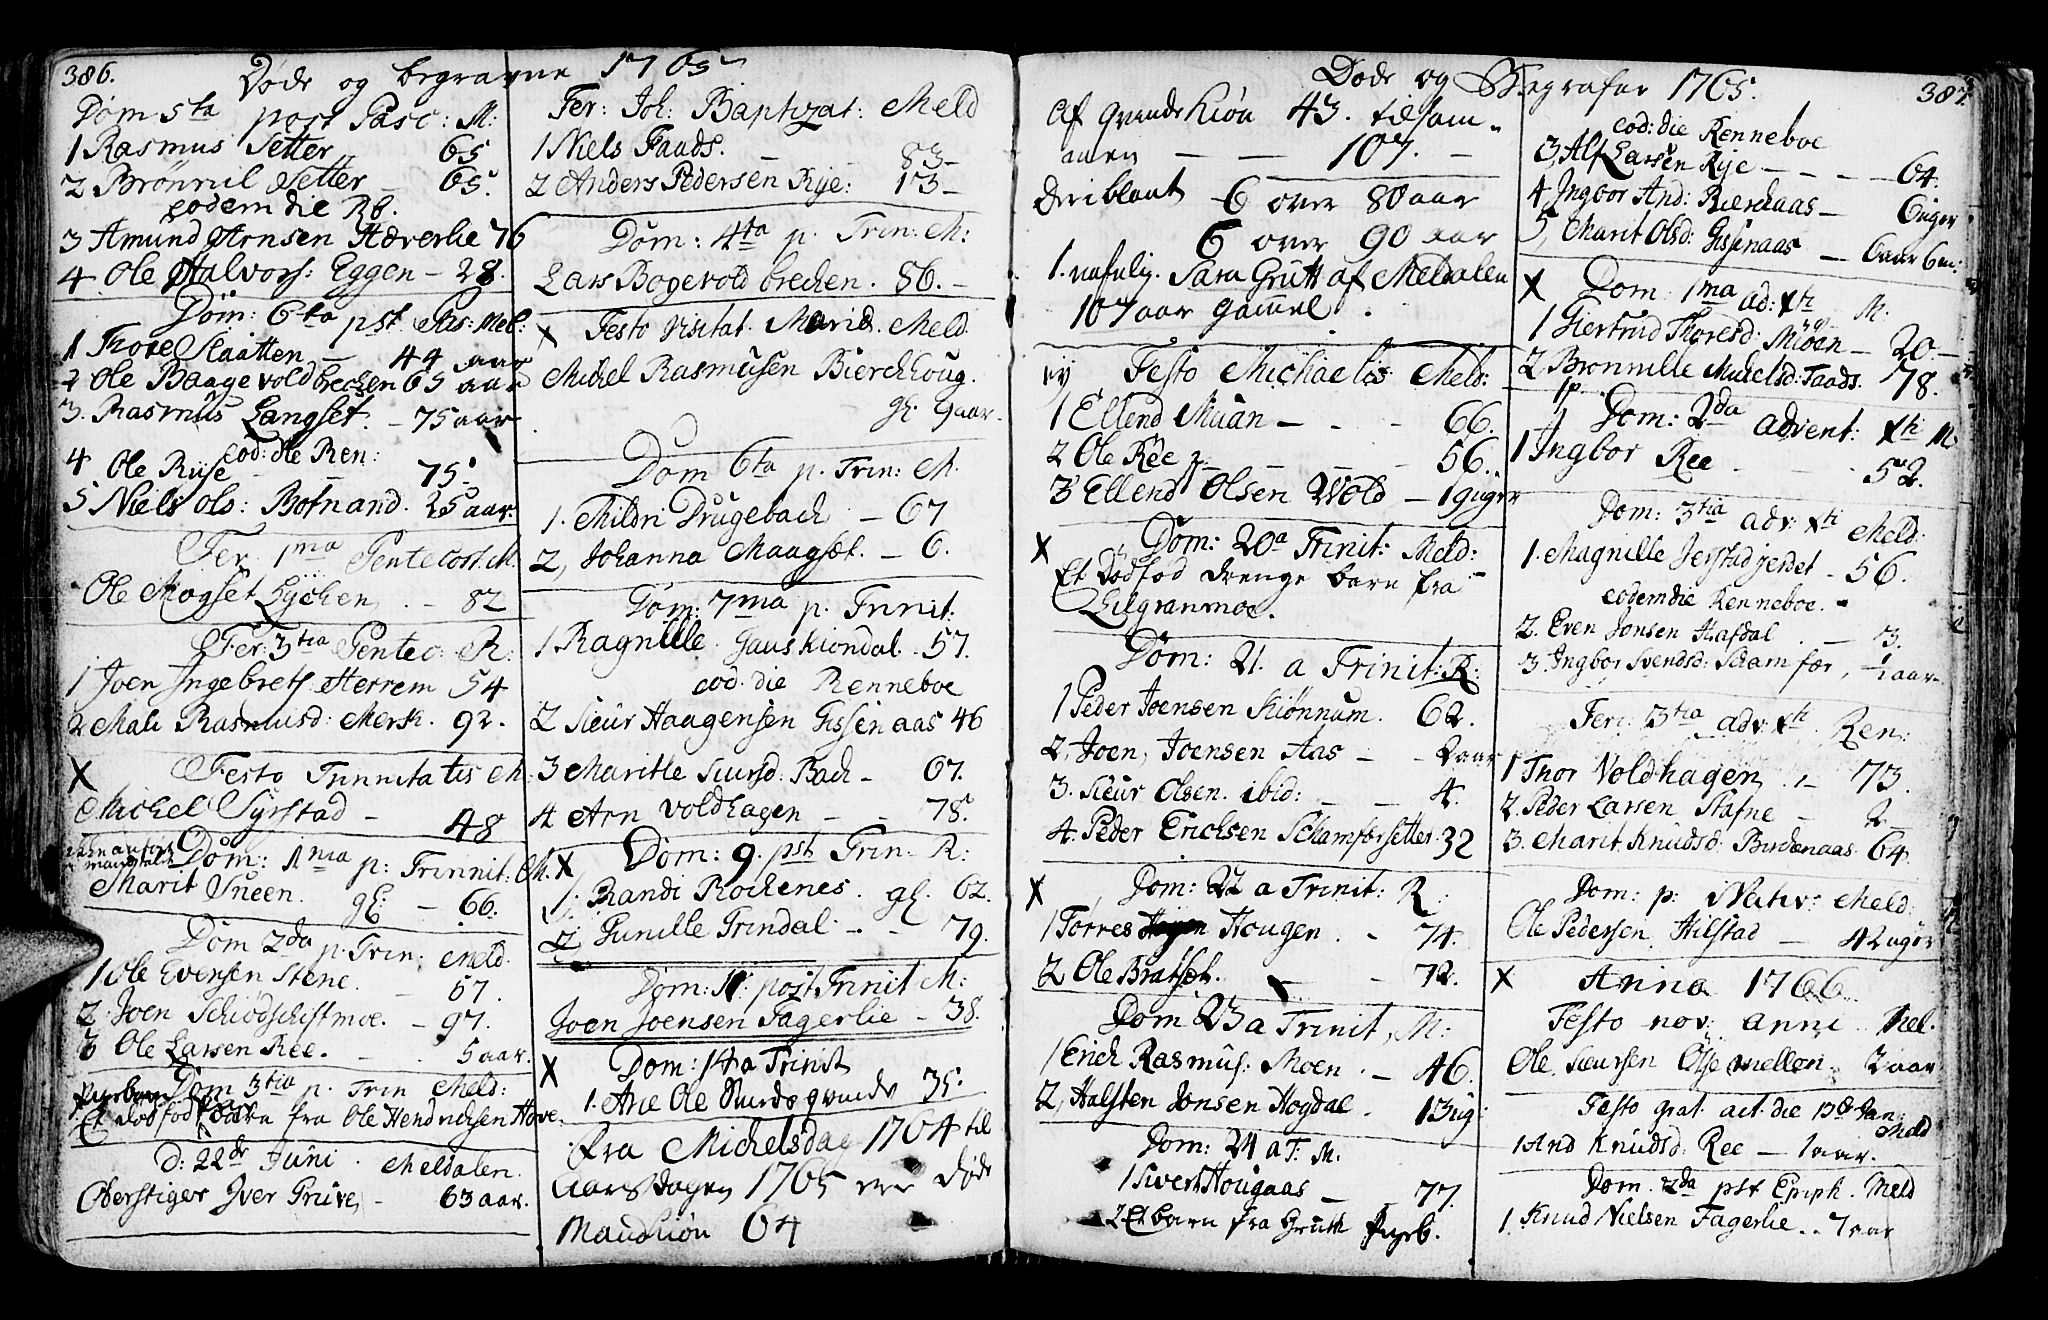 386.
Døde og begravne 1765
Dom 5ta post Pasc: M:
1 Rasmus Setter 65
2 Brönnil Setter – 65.
eodem die Rb.
3 Amund Arnsen Hæverlie 76
4 Ole Halvors: Eggen – 28.
Dom: 6ta pst Pas: Mel:
1 Thore Slaatten – 44 aar
2 Ole Baagevold brechen 65 aar
3. Rasmus Langset. – 75 aar
eod: die Ren:
4 Ole Riise – – 75.
5 Niels Ols: Botnand. 25 aar.
Fer. 1ma Pentecost. M.
Ole Mogset Lÿchen. – 82
Fer: 3tia Pentec: R:
1 Joen Ingebrets: Herrem 54
2 Mali Rasmusd: Mersk. 92.
X Festo Trinitatis M:
Michel Syrstad – 48
Dom: 1ma p: Trinnit: M.
Marit Sneen. gl: – 66.
Dom 2da p. Trin: Meld.
1 Ole Evensen Stene. – 67.
2. Joen Schiødschiftmoe. – 97.
3 Ole Larsen Ree. – . 5 aar.
Dom 3tia p. Trin Meld:
Et dödföd barn fra Ole Hendrichsen Hove.
D: 22de Juni. Meldalen.
Oberstiger Iver Gruve, – 63 aar.
Fer: Joh: Baptizat: Meld
1 Niels Faads. – – 83 –
2 Anders Pedersen Rye: 13 –
Dom: 4ta p. Trin: M:
Lars Bogevold brechen. 86. –
X Festo Visitat. Mariæ. Meld.
Michel Rasmusen Bierchhoug.
gl. 9 aar.
Dom 6ta p. Trin: M.
1. Mildri Drugebach – 67
2, Johanna Maagset. – 6.
Dom: 7ma p. Trinit.
1 Ragnille Gauskiøndal. 57.
eod. die Renneboe
2 Sieur Haagensen Gissenaas 46
3 Maritte Siursd: Bach – 67.
4 Arn Voldhagen – – 78.
X Dom: 9. pst Trin. R:
1. Randi Rochenes. gl. 62.
2 Gunille Grindal. . – 79.
Dom: 11: post Trinit M:
Joen Joensen Fagerlie – 38.
X Dom: 14 a Trinit
1. Arie Ole grunde 35.
fra Michelsdag 1764 til
Aarsdagen 1765 ere døde
Mandkiøn 64
Døde og Begrafne 1765.
387.
Af qvindekiøn 43. tilsam-
men – – 107. –
Deriblant 6 over 80 aar
6 over 90 aar
1. nafnlig. Sara Grutt af Meldalen
107 aar gammel.
Festo Michaelis Meld:
1 Ellend Muan – . – 66.
2 Ole Röe – – – 56.
3 Ellend Olsen Vold – 19 uger
X Dom: 20a Trinit: Meld:
Et Dödföd drenge barn fra
Lilgranmoe.
Dom: 21. a Trinit: R:
1 Peder Joensen Skiönnum. 62.
2, Joen, Joensen Aas – – 2 aar
3. Sieur Olsen. ibid: – – 4.
4. Peder Erichsen Schamfersetter. 32
X Dom: 22 a Trinit: R.
1 Torres Hougen. – 74.
2 Ole Bratset. – – 72.
Dom 23 a Trinit, M:
1 Erich Rasmus: Moen. – 46.
2, Halsten Jonsen Hogdal. . 13 ug:
Dom: 24 a T. M.
1 Sivert Hougaas – 77.
2. Et barn fra Gruth
eod: die Renneboe
3, Alf Larsen Rye – – – 64.
4 Ingbor And: Bierchaas – 6 uger
5, Marit Olsd: Gissenaas – 6 aar 6 m:
X Dom 1ma ad: Xti M:
1 Giertrud Thoresd: Miöen – 20. –
2 Bronnille Michelsd: Faads. 78.
Dom: 2da Advent: Xti M.
1 Ingbor Ree – – . 52.
Dom: 3tia adv: Xti Meld:
1. Magnille Jerstadjerdet – 56.
eodem die Renneboe.
2. Even Jonsen Hafdal . – 3.
3. Ingbor Svendsd: Schamfær, ½ aar –
Feri: 3tia adv: Xti. Ren:
1 Thor Voldhagen . – 73.
2. Peder Larsen Stafne – 2 –
3. Marit Knudsd: Bircenaas. 64.
Dom: p: Nativ: Meld:
Ole Pedersen Hilstad – 42 uger
X Anno 1766.
Festo nov: anni. Mel.
Ole Siursen Olsemellen. 2 aar
Festo grat. act. die 13de Jan: Meld
1 And Knudsd: Ree – 1 aar.
Dom. 2da pst Epiph. Meld
1. Knud Nielsen Fagerlie. . 7 aar